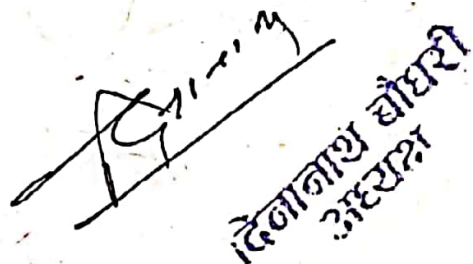 दिनानाथ चौधरी
अध्यक्ष